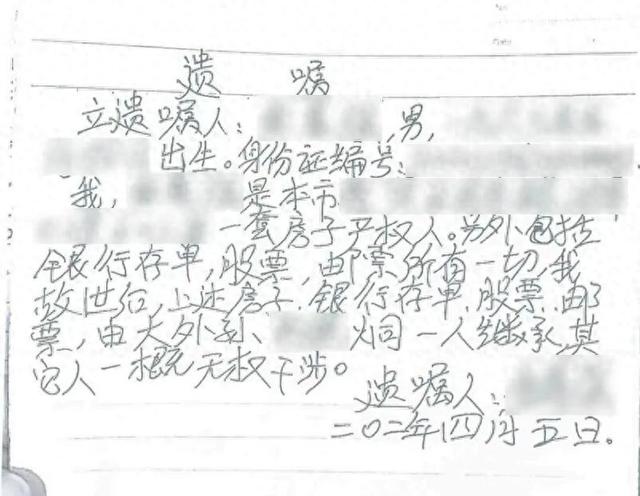 遗嘱
立遗嘱人：男，
出生。身份证编号：
我，是本市
一套房子产权人。另外包括
银行存单，股票，邮票所有一切，我
故世后，上述房子、银行存单、股票、邮
票，由大外孙、炯一人继承，其
它人一概无权干涉。
遗嘱人：
二〇二年四月五日。